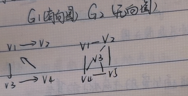 G₁(有向图) G₂(无向图)
V₁→V₂ V₁—V₂
V₃
V₃→V₄ V₄—V₅